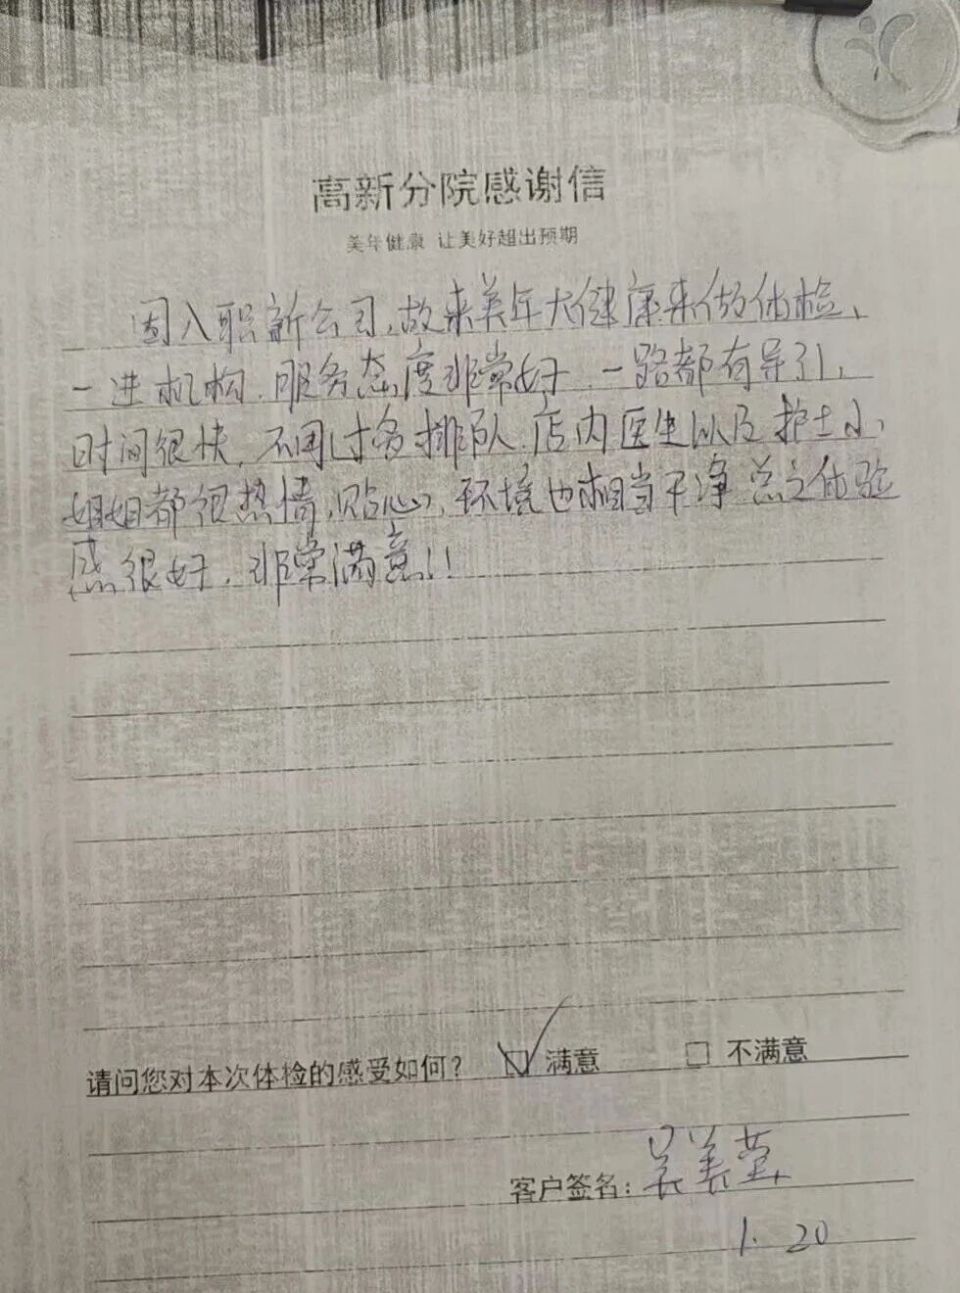 高新分院感谢信
美年健康 让美好超出预期
因入职新公司,故来美年大健康来做体检、
一进机构,服务态度非常好,一路都有导引,
时间很快,不用过多排队,店内医生以及护士小
姐姐都很热情,贴心,环境也相当干净,总之体验
感很好,非常满意!!
请问您对本次体检的感受如何? 满意 不满意
客户签名:吴美莹
1.20